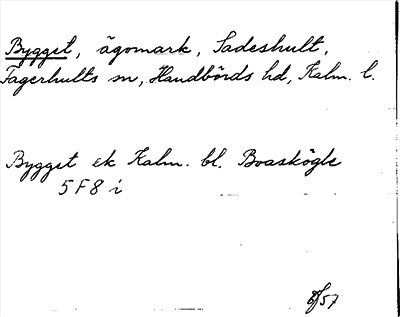 Bygget, ägomark, Sadeshult,
Fagerhults sn, Handbörds hd, Kalm. l.
Bygget ek Kalm. bl. Boaskögle
5 F 8 i